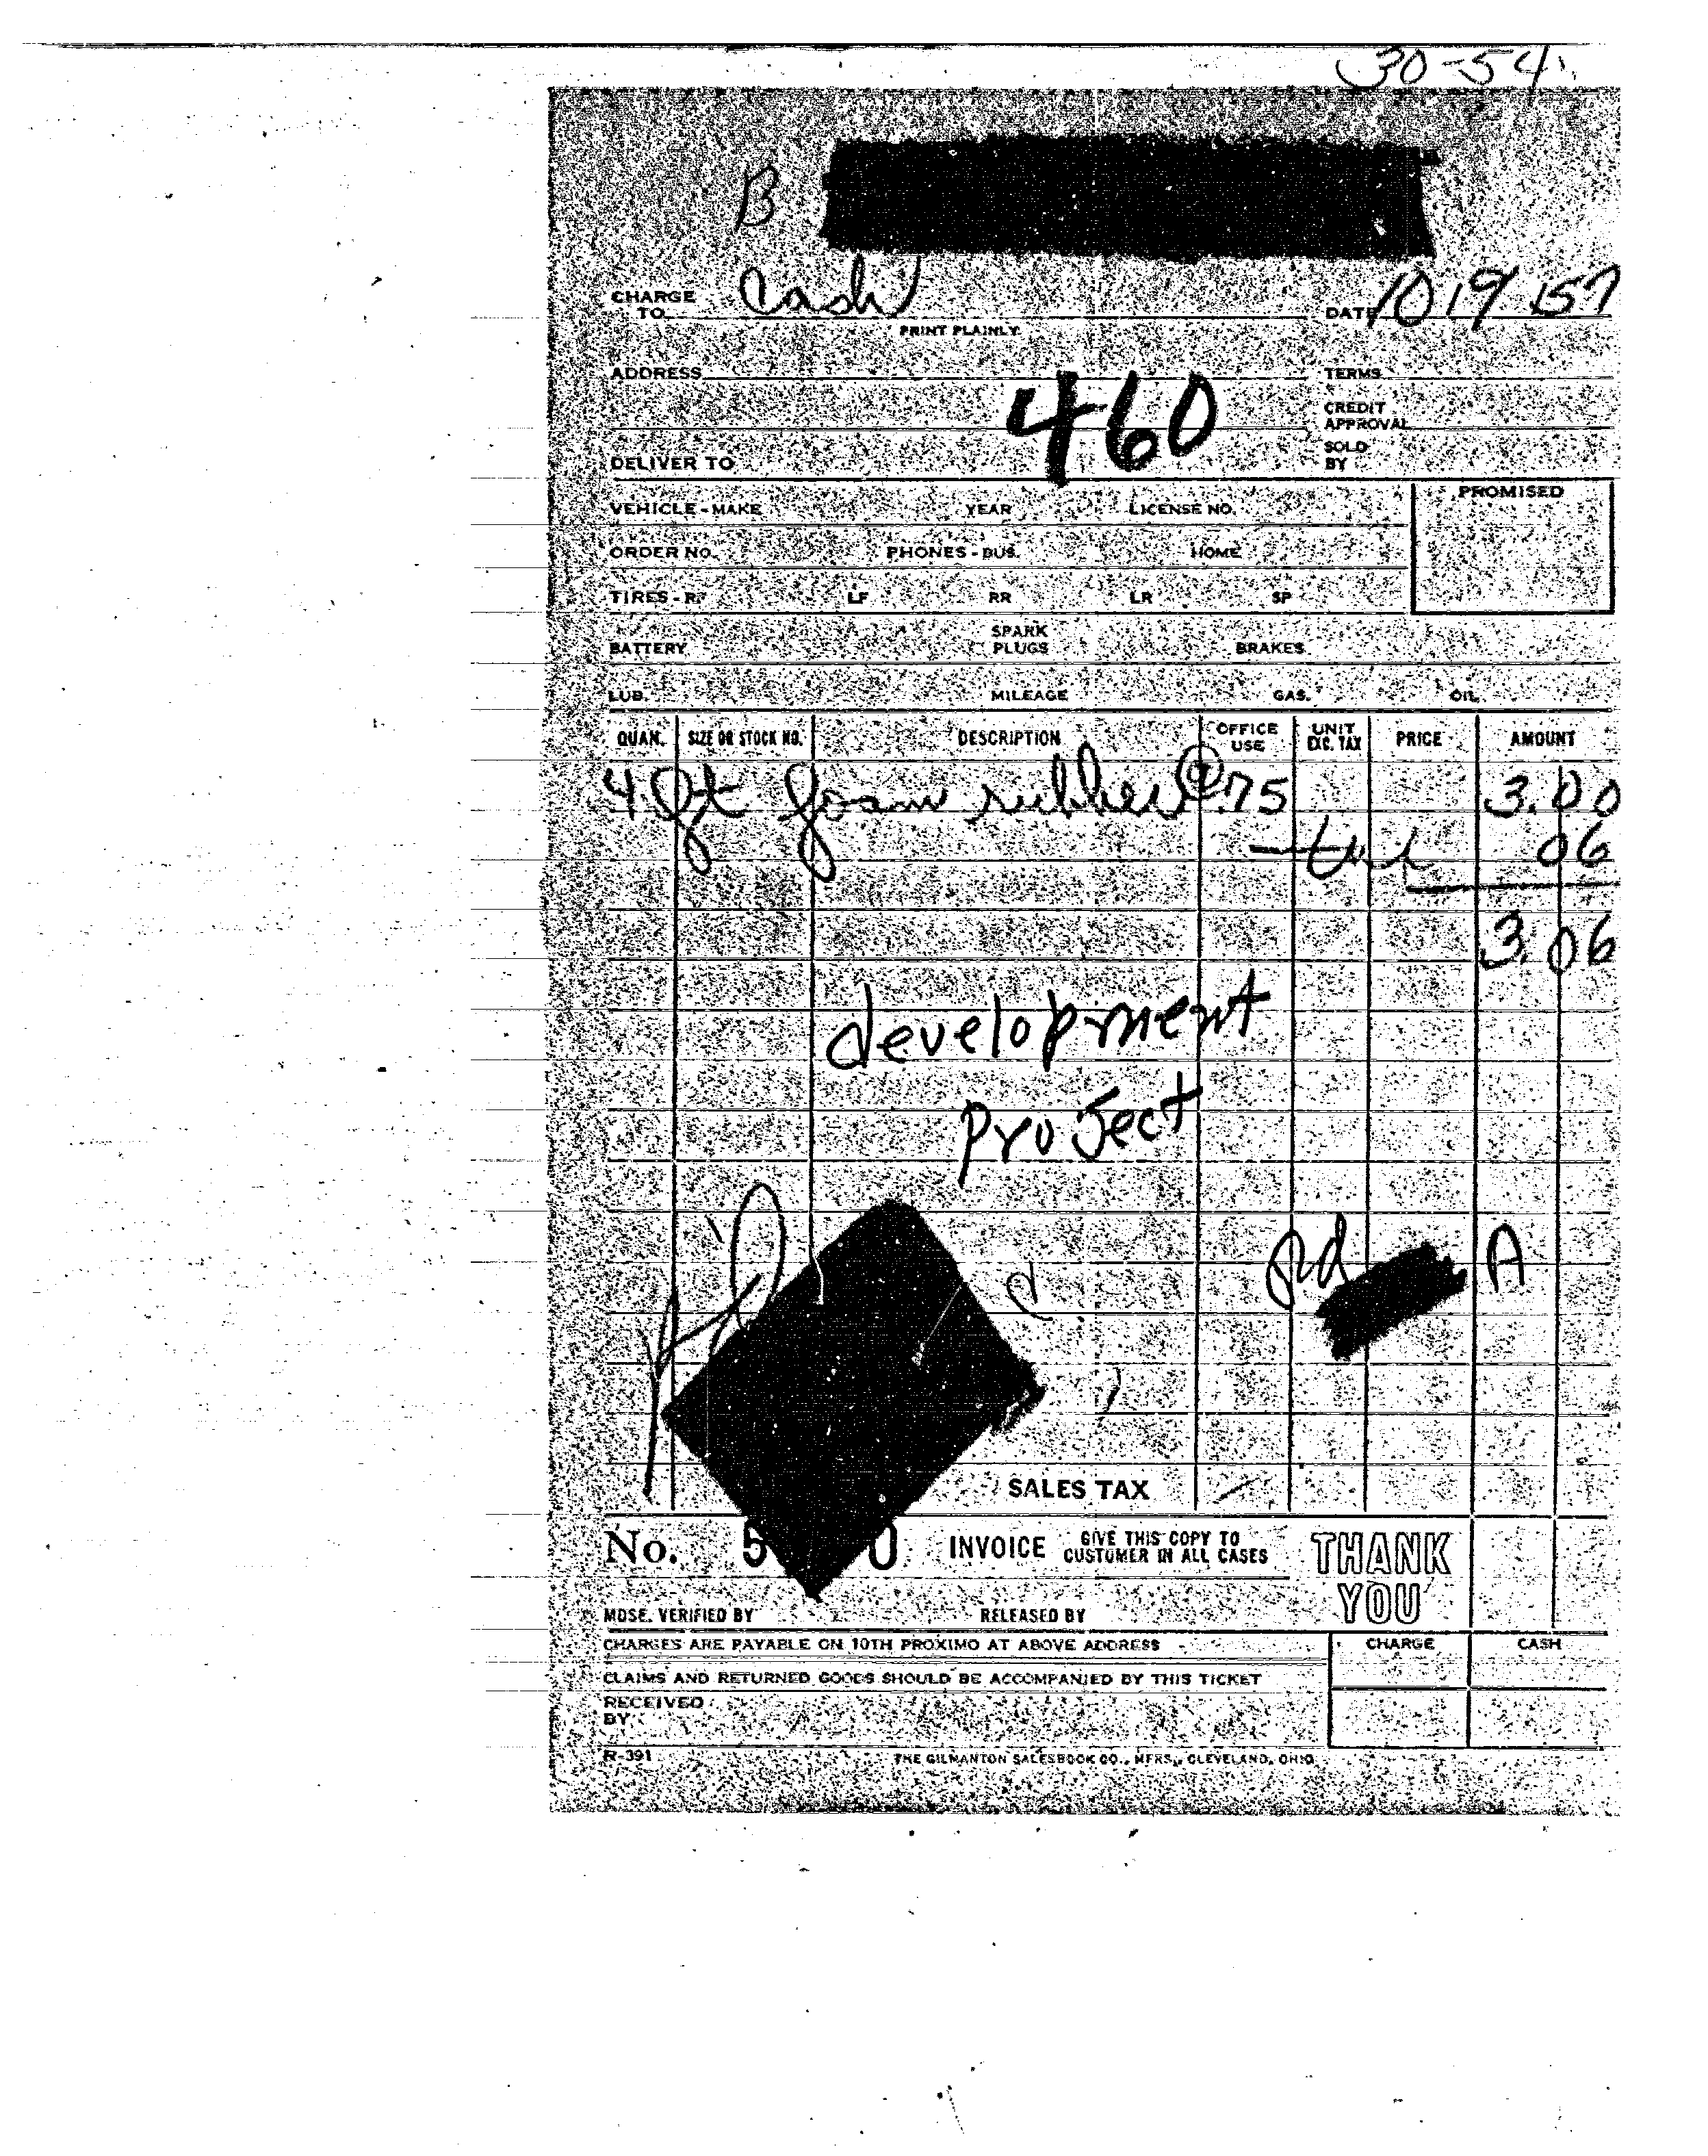 30-54
B
CHARGE TO Cash DATE 10 19 1957
PRINT PLAINLY
ADDRESS TERMS
460
CREDIT APPROVAL
DELIVER TO SOLD BY
PROMISED
VEHICLE - MAKE YEAR LICENSE NO.
ORDER NO. PHONES - BUS. HOME
TIRES - R. LF RR LR SP
BATTERY SPARK PLUGS BRAKES
LUB. MILEAGE GAS. OIL
QUAN. SIZE OR STOCK NO. DESCRIPTION OFFICE USE UNIT EXC. TAX PRICE AMOUNT
4 ft foam rubber @ .75 3.00
06
3.06
development
project
pd A
SALES TAX
No. 5 0 INVOICE GIVE THIS COPY TO CUSTOMER IN ALL CASES THANK YOU
MDSE. VERIFIED BY RELEASED BY
CHARGES ARE PAYABLE ON 10TH PROXIMO AT ABOVE ADDRESS CHARGE CASH
CLAIMS AND RETURNED GOODS SHOULD BE ACCOMPANIED BY THIS TICKET
RECEIVED BY
R-391 THE GILMANTON SALESBOOK CO., MFRS., CLEVELAND, OHIO